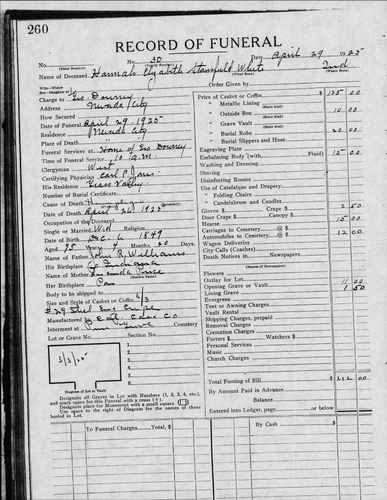 260
RECORD OF FUNERAL
No. No. 30 Date April 29 1925
(Total Number) (Yearly Number)
Name of Deceased Hannah Elyabeth Stanfield White Ind.
(What Race)
Wife—Widow
Son—Daughter of Order Given by
Charge to Geo Downey
Address Nevada City
How Secured
Date of Funeral April 29 1925
Residence Nevada City
Place of Death
Funeral Services at Home of Geo Downey
Time of Funeral Service 10 A.M.
Clergyman West
Certifying Physician Carl P. Jones
His Residence Grass Valley
Number of Burial Certificate
Cause of Death
Date of Death April 26 1925
Occupation of the Deceased
Single or Married Wid Religion
Date of Birth Dec. 6 1849
Aged 75 Years 4 Months 20 Days
Name of Father John R. Williams
His Birthplace Indiana
Name of Mother Lucinda Price
(Maiden Name)
Her Birthplace Pa
Body to be shipped to
Size and Style of Casket or Coffin 6/3
#29
Manufactured by Calif. Cask Co
Interment at Pine Grove Cemetery
Lot or Grave No. Section No.
3/3/25
Diagram of Lot or Vault
Designate all Graves in Lot with Numbers (1, 2, 3, 4, etc.),
and mark space for this Funeral with a cross (+).
Designate place for Monument with a small square
Use space to the right of Diagram for the names of those
buried in Lot.
Price of Casket or Coffin $ 125 00
(State Kind)
" Metallic Lining
(State Kind)
" Outside Box 10 00
(State Kind)
" Grave Vault
(State Kind)
" Burial Robe 20 00
(State Kind)
" Burial Slippers and Hose
Engraving Plate
Embalming Body (with Fluid) 15 00
Washing and Dressing
Shaving
Disinfecting Rooms
Use of Catafalque and Drapery
" Folding Chairs
" Candelabrum and Candles
Gloves $ Crape $ 2 50
Door Crape Canopy $
Hearse 15 00
Carriages to Cemetery @ $
Automobiles to Cemetery @ $ 12 00
Wagon Deliveries
City Calls (Coaches)
Death Notices in Newspapers
(Names of Newspapers)
Flowers
Outlay for Lot
Opening Grave or Vault 11 00
Lining Grave 1 50
Evergreen
Tent or Awning Charges
Vault Rental
Shipping Charges, prepaid
Removal Charges
Cremation Charges
Porters $ Watchers $
Personal Services
Music
Church Charges
Total Footing of Bill $ 212 00
By Amount Paid in Advance
Balance
Entered into Ledger, page or below
To Funeral Charges Total, $
By Cash $